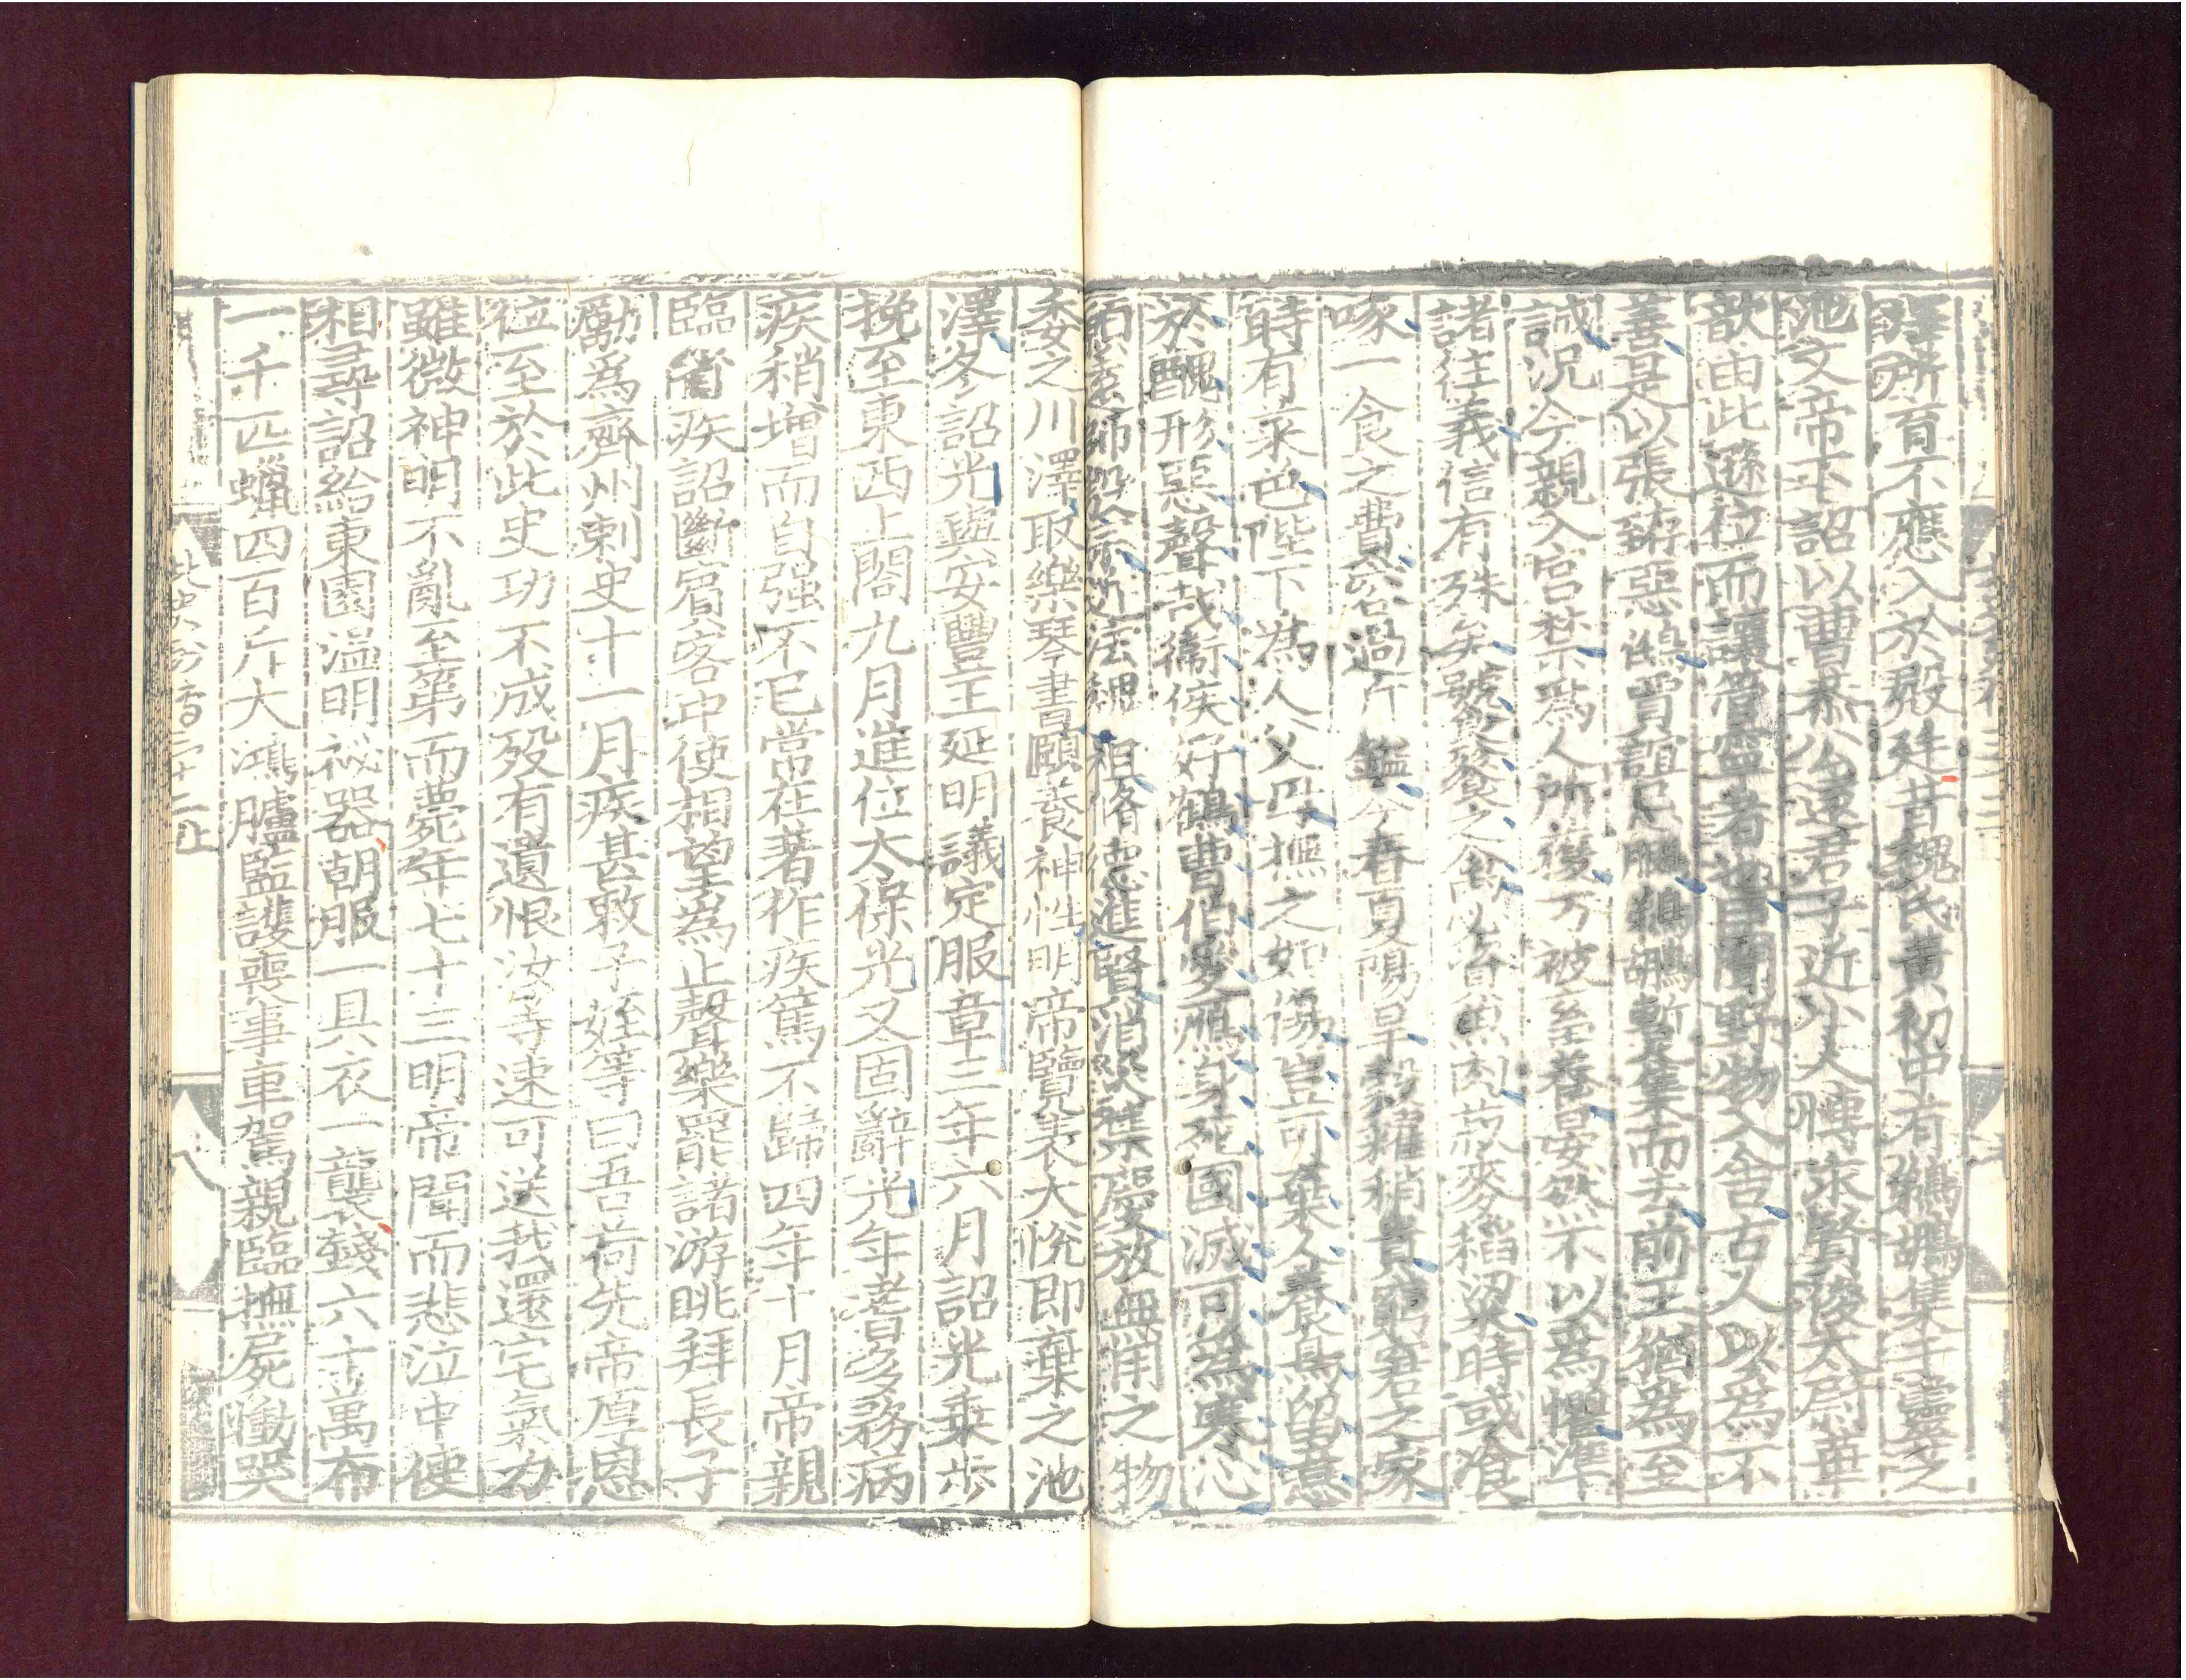 澤所育不應入於殿廷昔魏氏黃初中有鵜鶘集于靈芝
池文帝下詔以曹恭公遠君子近小人博求賢俊太尉華
歆由此遜位而讓管寧者也臣聞野物入舍古人以爲不
善是以張臶惡鵀賈誼忌鵩鵜鶘暫集而去前王猶爲至
誡況今親入宮禁爲人所獲方被畜養晏然不以爲懼準
諸往義信有殊矣饕餮之禽必資魚肉菽麥稻粱時或飡
啄一食之費容過斤鎰今春夏陽旱穀糴稍貴窮窘之家
時有菜色陛下爲人父母撫之如傷豈可棄人養鳥留意
於醜形惡聲哉衞侯好鶴曹伯愛鴈身死國滅可爲寒心
願遠師殷宗近法魏祖脩德進賢消災集慶放無用之物
委之川澤取樂琴書頤養神性明帝覽表大悅即棄之池
澤冬詔光與安豐王延明議定服章三年六月詔光乗步
挽至東西上閤九月進位太保光又固辭光年耆多務病
疾稍增而自强不已常在著作疾篤不歸四年十月帝親
臨省疾詔斷賓客中使相望爲止聲樂罷諸游眺拜長子
勵爲齊州刺史十一月疾甚敕子姪等曰吾荷先帝厚恩
位至於此史功不成歿有遺恨汝等速可送我還宅氣力
雖微神明不亂至第而薨年七十三明帝聞而悲泣中使
相尋詔給東園溫明祕器朝服一具衣一襲錢六十萬布
一千匹蠟四百斤大鴻臚監護喪事車駕親臨撫屍慟哭
北史列傳三十二
八